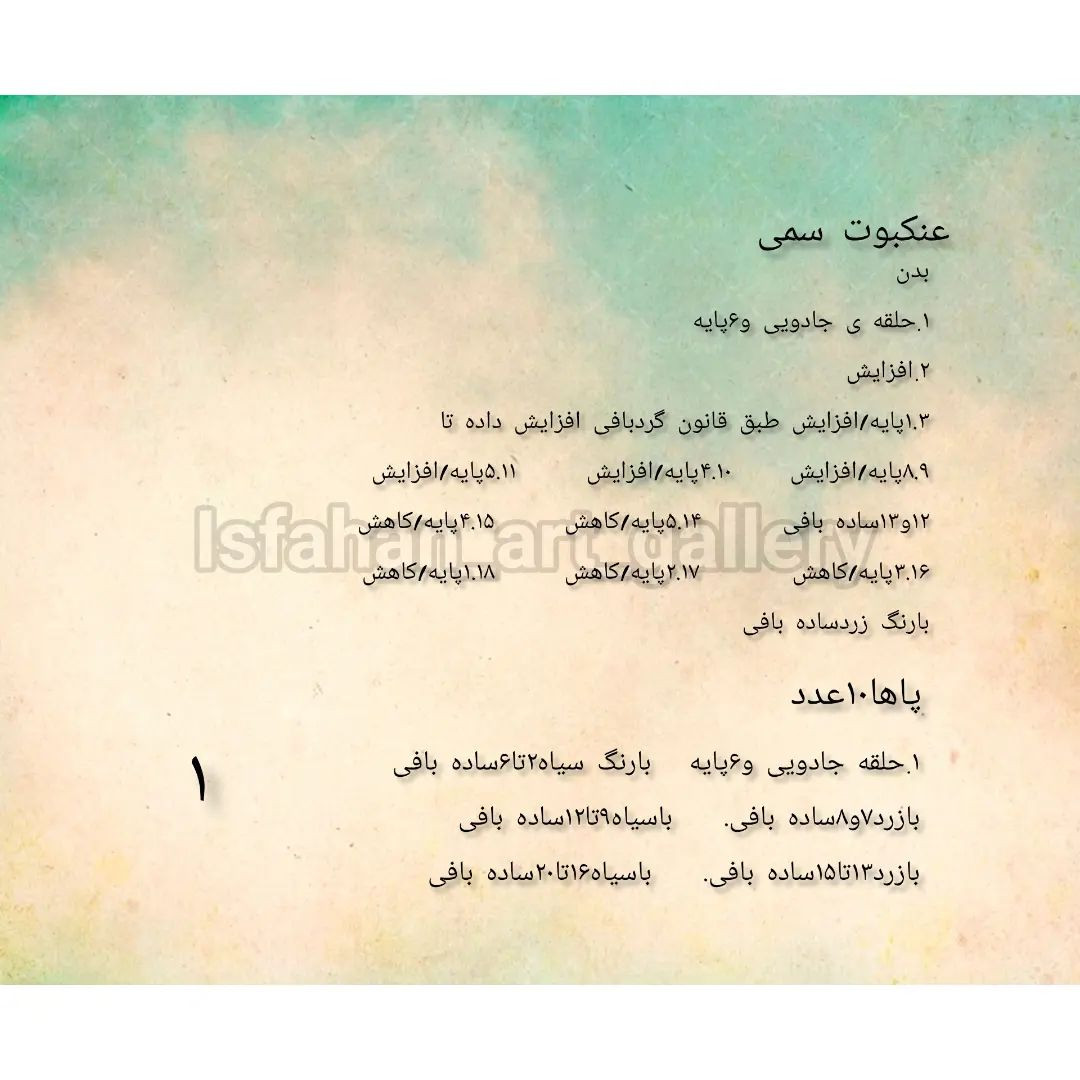 عنکبوت سمی
بدن
۱.حلقه ی جادویی و۶پایه
۲.افزایش
۱.۳پایه/افزایش طبق قانون گردبافی افزایش داده تا
۸.۹پایه/افزایش ۴.۱۰پایه/افزایش ۵.۱۱پایه/افزایش
۱۲و۱۳ساده بافی ۵.۱۴پایه/کاهش ۴.۱۵پایه/کاهش
Isfahan_art_gallery
۳.۱۶پایه/کاهش ۲.۱۷پایه/کاهش ۱.۱۸پایه/کاهش
بارنگ زردساده بافی
پاها۱۰عدد
۱.حلقه جادویی و۶پایه بارنگ سیاه۲تا۶ساده بافی
بازرد۷و۸ساده بافی. باسیاه۹تا۱۲ساده بافی
بازرد۱۳تا۱۵ساده بافی. باسیاه۱۶تا۲۰ساده بافی
۱